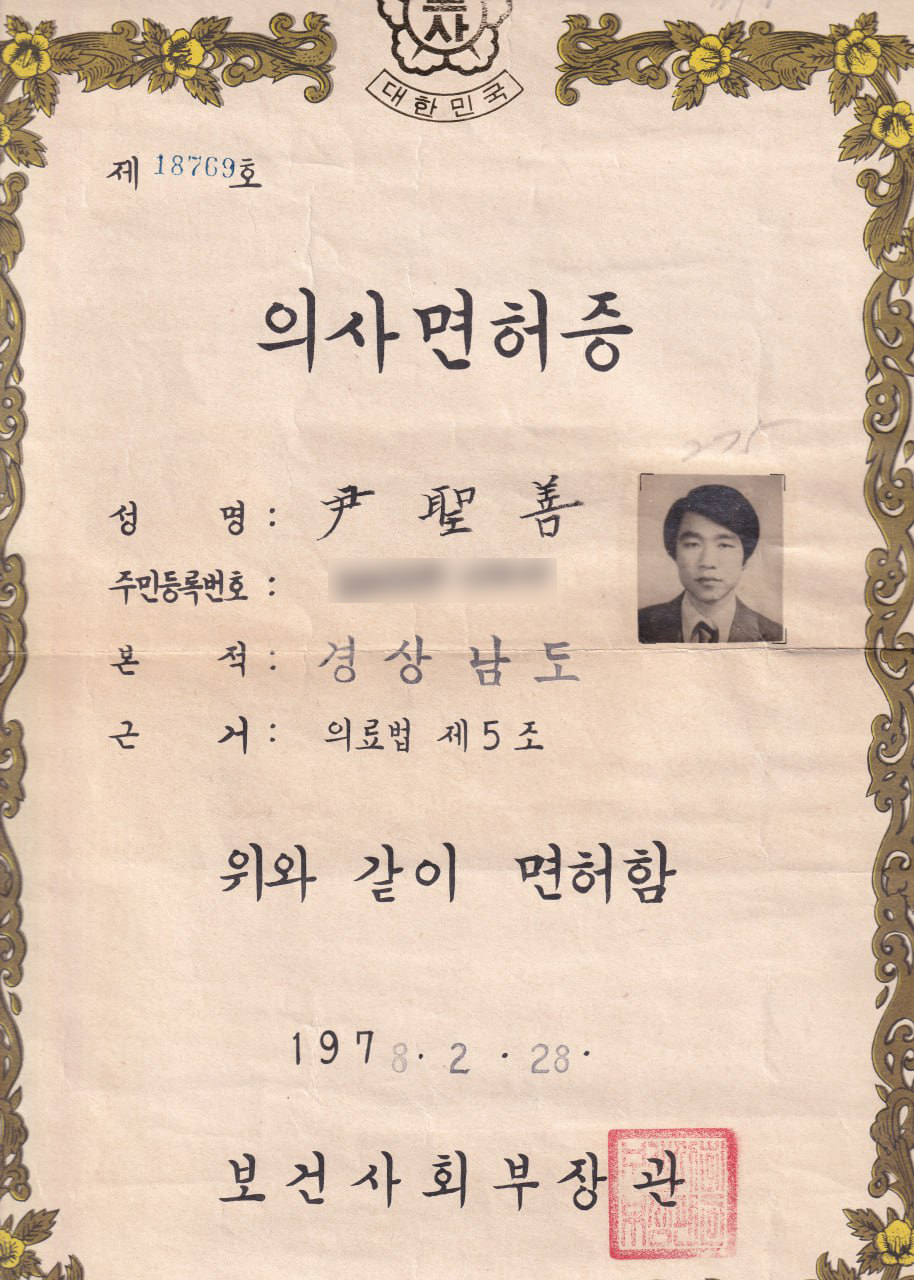 사
대한민국
제 18769호
의사면허증
275
성 명 : 尹 聖 善
주민등록번호 :
본 적 : 경상남도
근 거 : 의료법 제5조
위와 같이 면허함
1978. 2. 28.
보건사회부장관